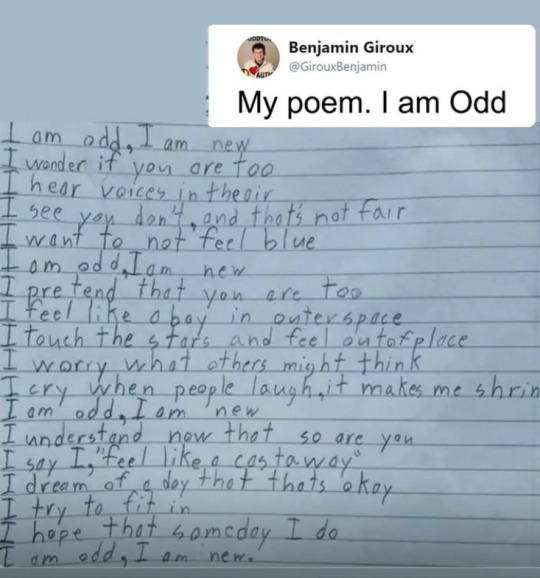 Benjamin Giroux
@GirouxBenjamin
My poem. I am Odd
I am odd, I am new
I wonder if you are too
I hear voices in the air
I see you don't, and that's not fair
I want to not feel blue
I am odd, I am new
I pretend that you are too
I feel like a boy in outerspace
I touch the stars and feel out of place
I worry what others might think
I cry when people laugh, it makes me shrin
I am odd, I am new
I understand now that so are you
I say I, "feel like a castaway"
I dream of a day that thats okay
I try to fit in
I hope that someday I do
I am odd, I am new.